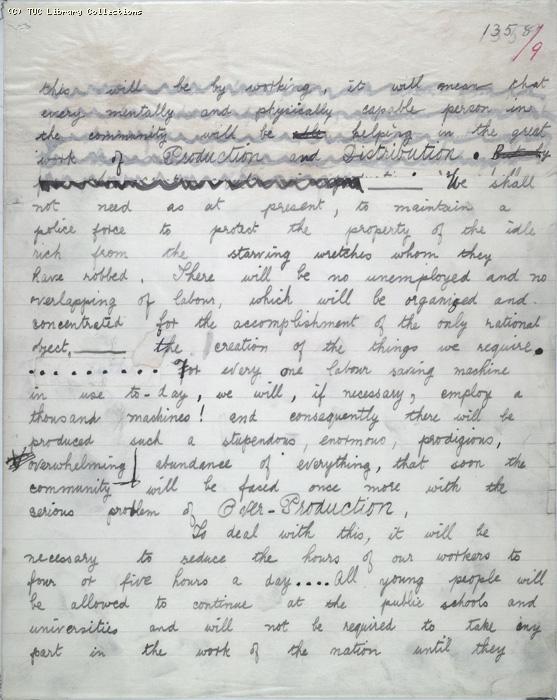 (C) TUC Library Collections
1358/9
this will be by working, it will mean that
every mentally and physically capable person in
the community will be helping in the great
work of Production and Distribution.
We shall
not need as at present, to maintain a
police force to protect the property of the idle
rich from the starving wretches whom they
have robbed. There will be no unemployed and no
overlapping of labour, which will be organized and
concentrated for the accomplishment of the only rational
object, ___ the creation of the things we require.
......... For every one labour saving machine
in use to-day, we will, if necessary, employ a
thousand machines! and consequently there will be
produced such a stupendous, enormous, prodigious,
overwhelming abundance of everything, that soon the
community will be faced once more with the
serious problem of Over-Production.
To deal with this, it will be
necessary to reduce the hours of our workers to
four or five hours a day.... All young people will
be allowed to continue at the public schools and
universities and will not be required to take any
part in the work of the nation until they